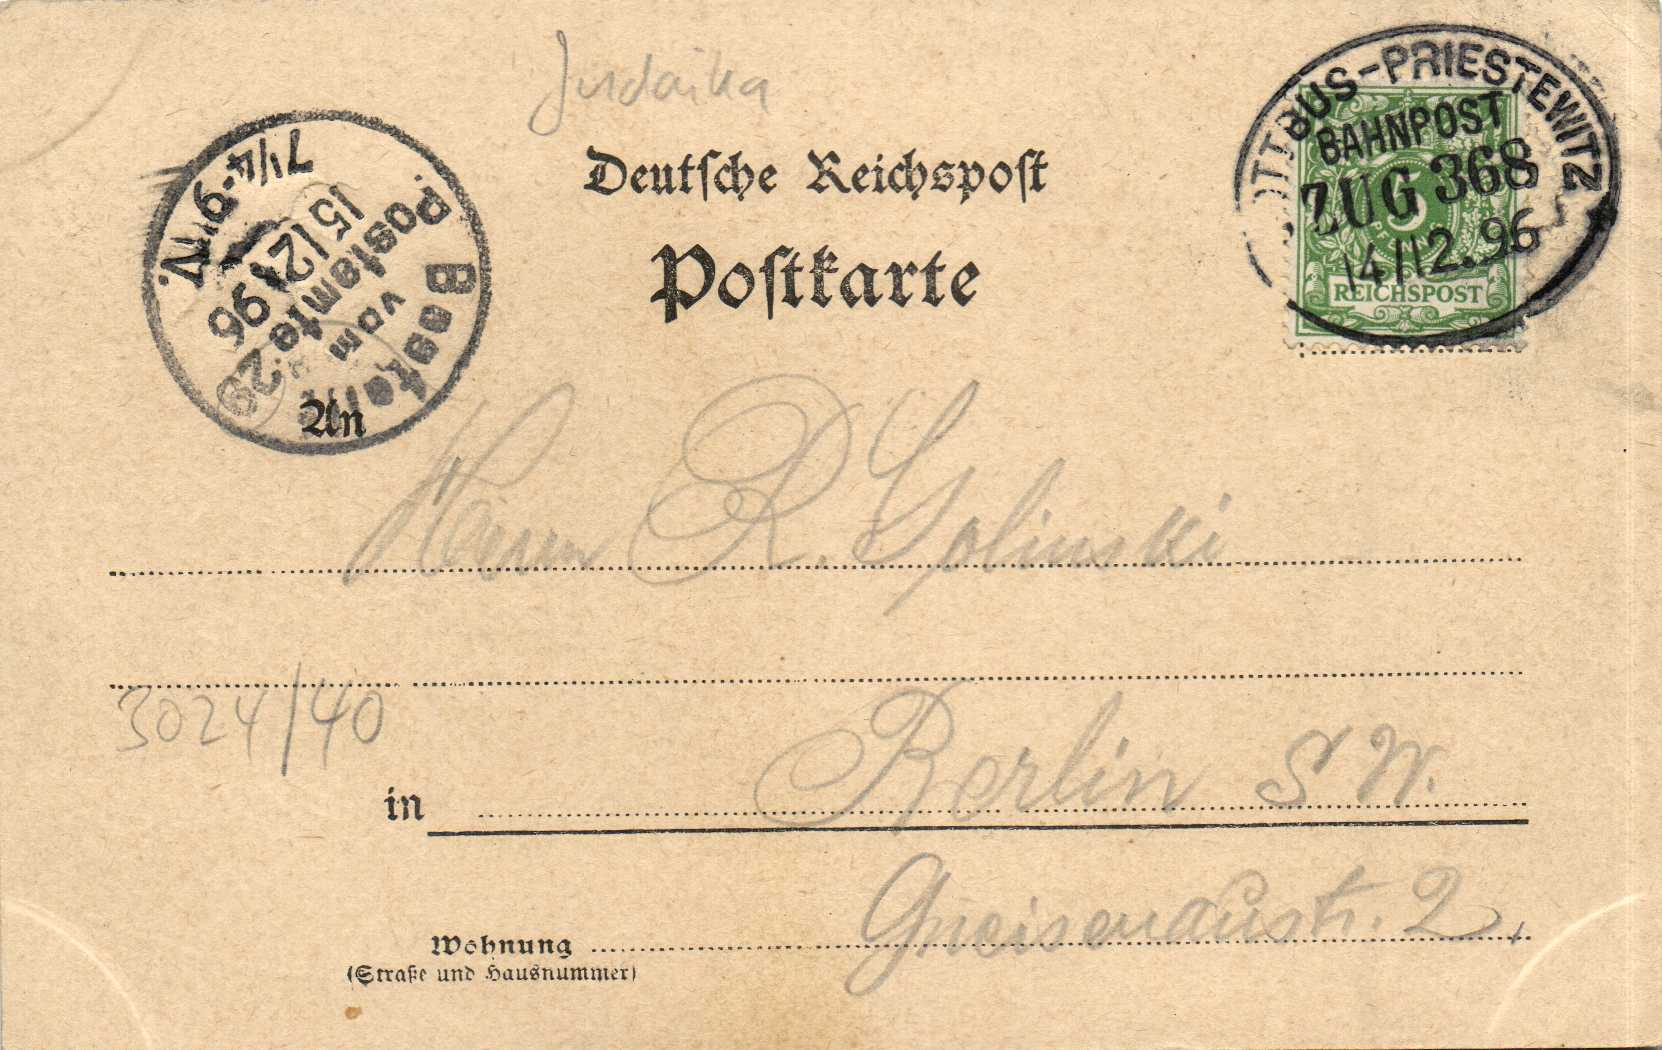 Judaika
Deutsche Reichspost
Postkarte
OTTBUS-PRIESTEWITZ
BAHNPOST
ZUG 368
14 12.96
5
REICHSPOST
Bestellt
vom
Postamte 29
15/12 96
7 1/4-9 V.
An
Herrn R. Golinski
3024/40
in Berlin SW.
Wohnung Gneisenaustr. 2,
(Straße und Hausnummer)